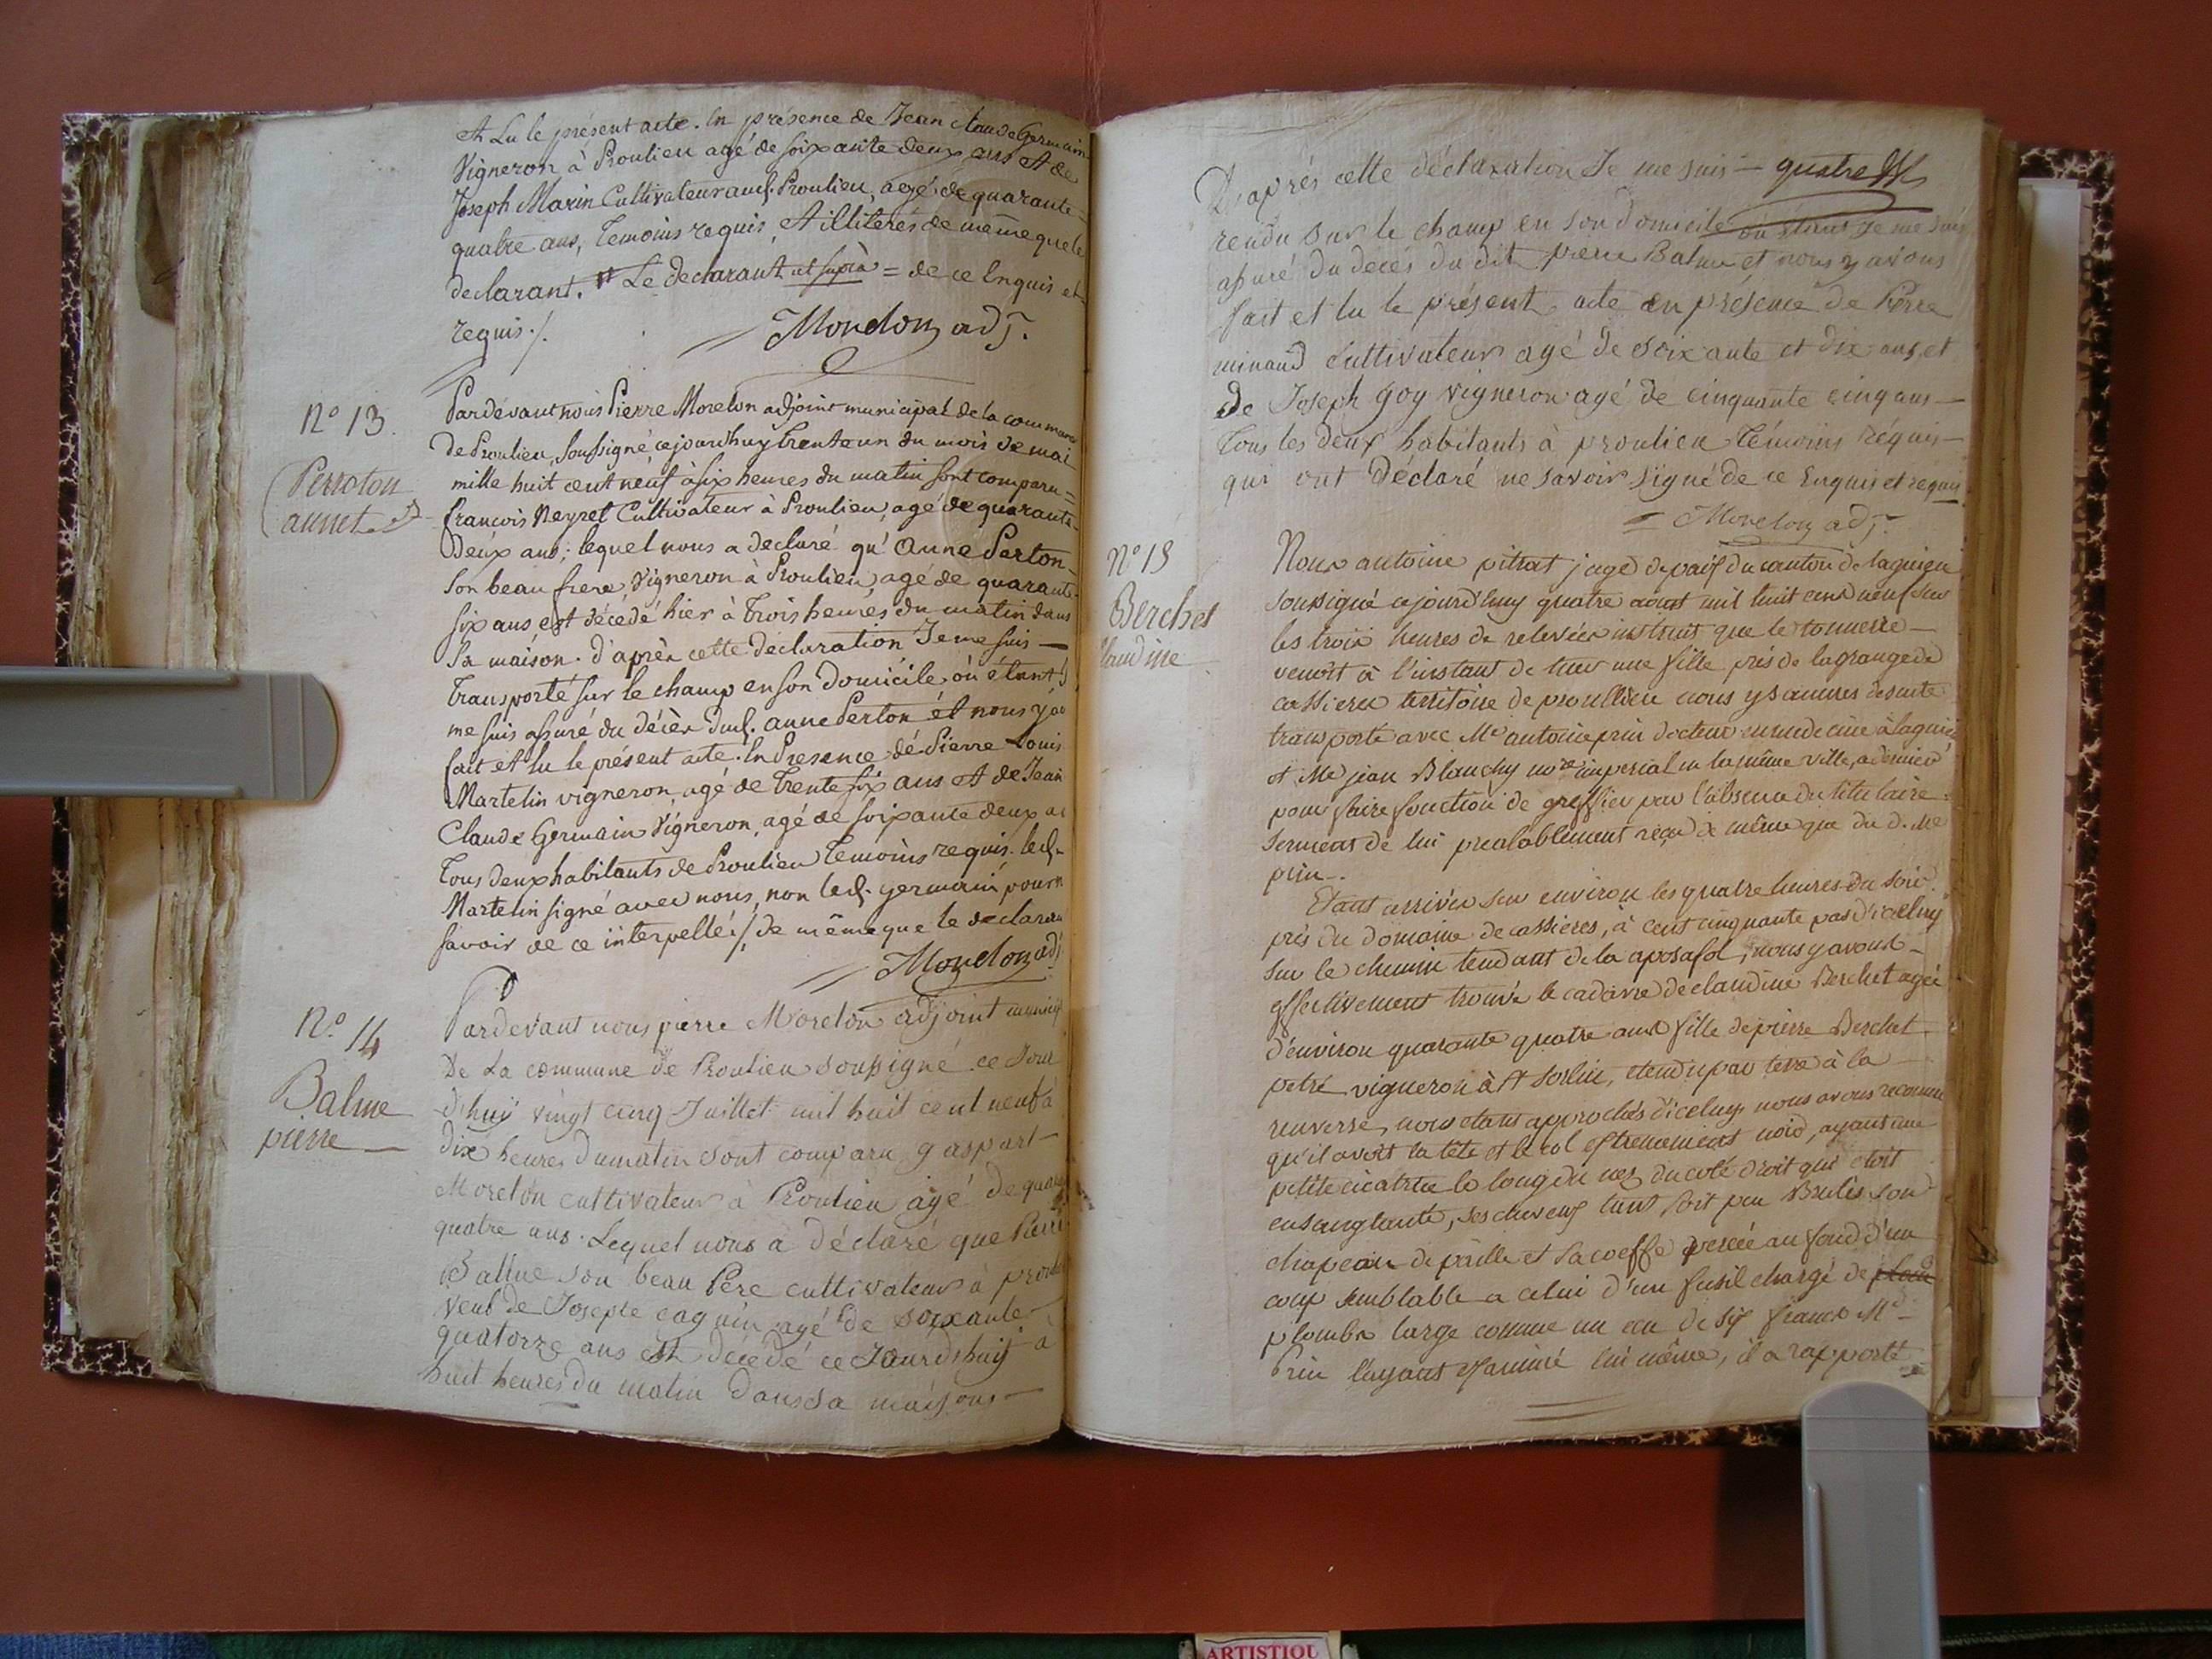 et Lu le présent acte. En présence de Jean Claude Germain
Vigneron à Proulieu agé de soixante deux ans et de
Joseph Marin Cultivateur aud. Proulieu, agé de quarante-
quatre ans, témoins requis, et illiterés de même que le
declarant. Le declarant ut suprà = de ce Enquis et
requis ./.
Morelon adj.
N° 13.
Perroton
annet
Pardevant nous Pierre Morelon adjoint municipal de la commune
de Proulieu, soussigné cejourdhuy trente un du mois de mai
mille huit cent neuf à six heures du matin sont comparu =
francois Neyret Cultivateur à Proulieu, agé de quarante-
Deux ans; lequel nous a declaré qu'anne Perton-
son beau frere, Vigneron à Proulieu, agé de quarante-
six ans est décedé hier à trois heures du matin dans
sa maison. d'après cette declaration Je me suis —
transporté sur le champ en son domicile, où étant J
me suis assuré du décès dud. anne Perton et nous y av
fait et lu le présent acte. En Presence de Pierre Louis
Martelin vigneron, agé de trente six ans et de Jean
Claude Germain Vigneron, agé de soixante deux a
tous deux habitants de Proulieu temoins requis. led.
Martelin signé avec nous, non led. germain pour n
savoir de ce interpellé ./. de même que le declaran
Morelon adj
N° 14
Balme
pierre
Pardevant nous pierre Morelon adjoint municip
De La commune de Proulieu soussigné ce Jour
d'huÿ vingt cinq Juillet mil huit cent neuf à
dix heures du matin sont comparu gaspart —
Morelon cultivateur à Proulieu agé de quar
quatre ans. Lequel nous a déclaré que Pierre
Balme son beau Père cultivateur à proul
veuf de Josepte cagnin agé de soixante
quatorze ans est décédé ce Jourd'huÿ à
huit heures du matin dans sa maison —
D'après cette déclaration Je me suis — quatre
rendu sur le champ en son domicile où étant Je me suis
assuré du decés du dit pierre Balme et nous y avons
fait et lu le présent acte en présence de Pierre
minand cultivateur agé de soixante et dix ans et
de Joseph goy vigneron agé de cinquante cinq ans —
tous les deux habitants à proulieu témoins réquis —
qui ont Déclaré ne savoir signé de ce Enquis et requis
Morelon adj.
N° 15
Berchet
Claudine
Nous antoine pitrat juge de paix du canton de lagnieu
soussigné cejourd'huy quatre aout mil huit cent neuf sur
les trois heures de relevée instruit que le tonnerre —
venoit à l'instant de tuer une fille près de la grange de
cassieres territoire de proullieu nous y sommes de suite
transporté avec Me antoine prin docteur en medecine à lagnieu
et Me jean Blanchy nore imperial en la même ville,
pour faire fonction de greffier pour l'absence du titulaire
serment de lui prealablement reçu de même que du d. Me
prin —.
Etant arrivés sur environ les quatre heures du soir
près du domaine de cassieres, à cent cinquante pas d'iceluy
sur le chemin tendant de la, nous y avons —
effectivement trouvé le cadavre de claudine Berchet agée
d'environ quarante quatre ans fille de pierre Berchet
petré vigneron à St sorlin, etendu par terre à la —
renverse, nous etants approchés d'iceluy nous avons reconnu
qu'il avoit la tête et le col extremement noir, ayant une
petite cicatrice le long du nez du coté droit qui etoit
ensanglanté, ses cheveux tant soit peu Brulés son
chapeau de paille et sa coeffe percée au fond d'un
coup semblable a celui d'un fusil chargé de plom
plombs large comme un ecu de six francs Me —
Prin l'ayant examiné lui même, il a rapporté
ARTISTIQU